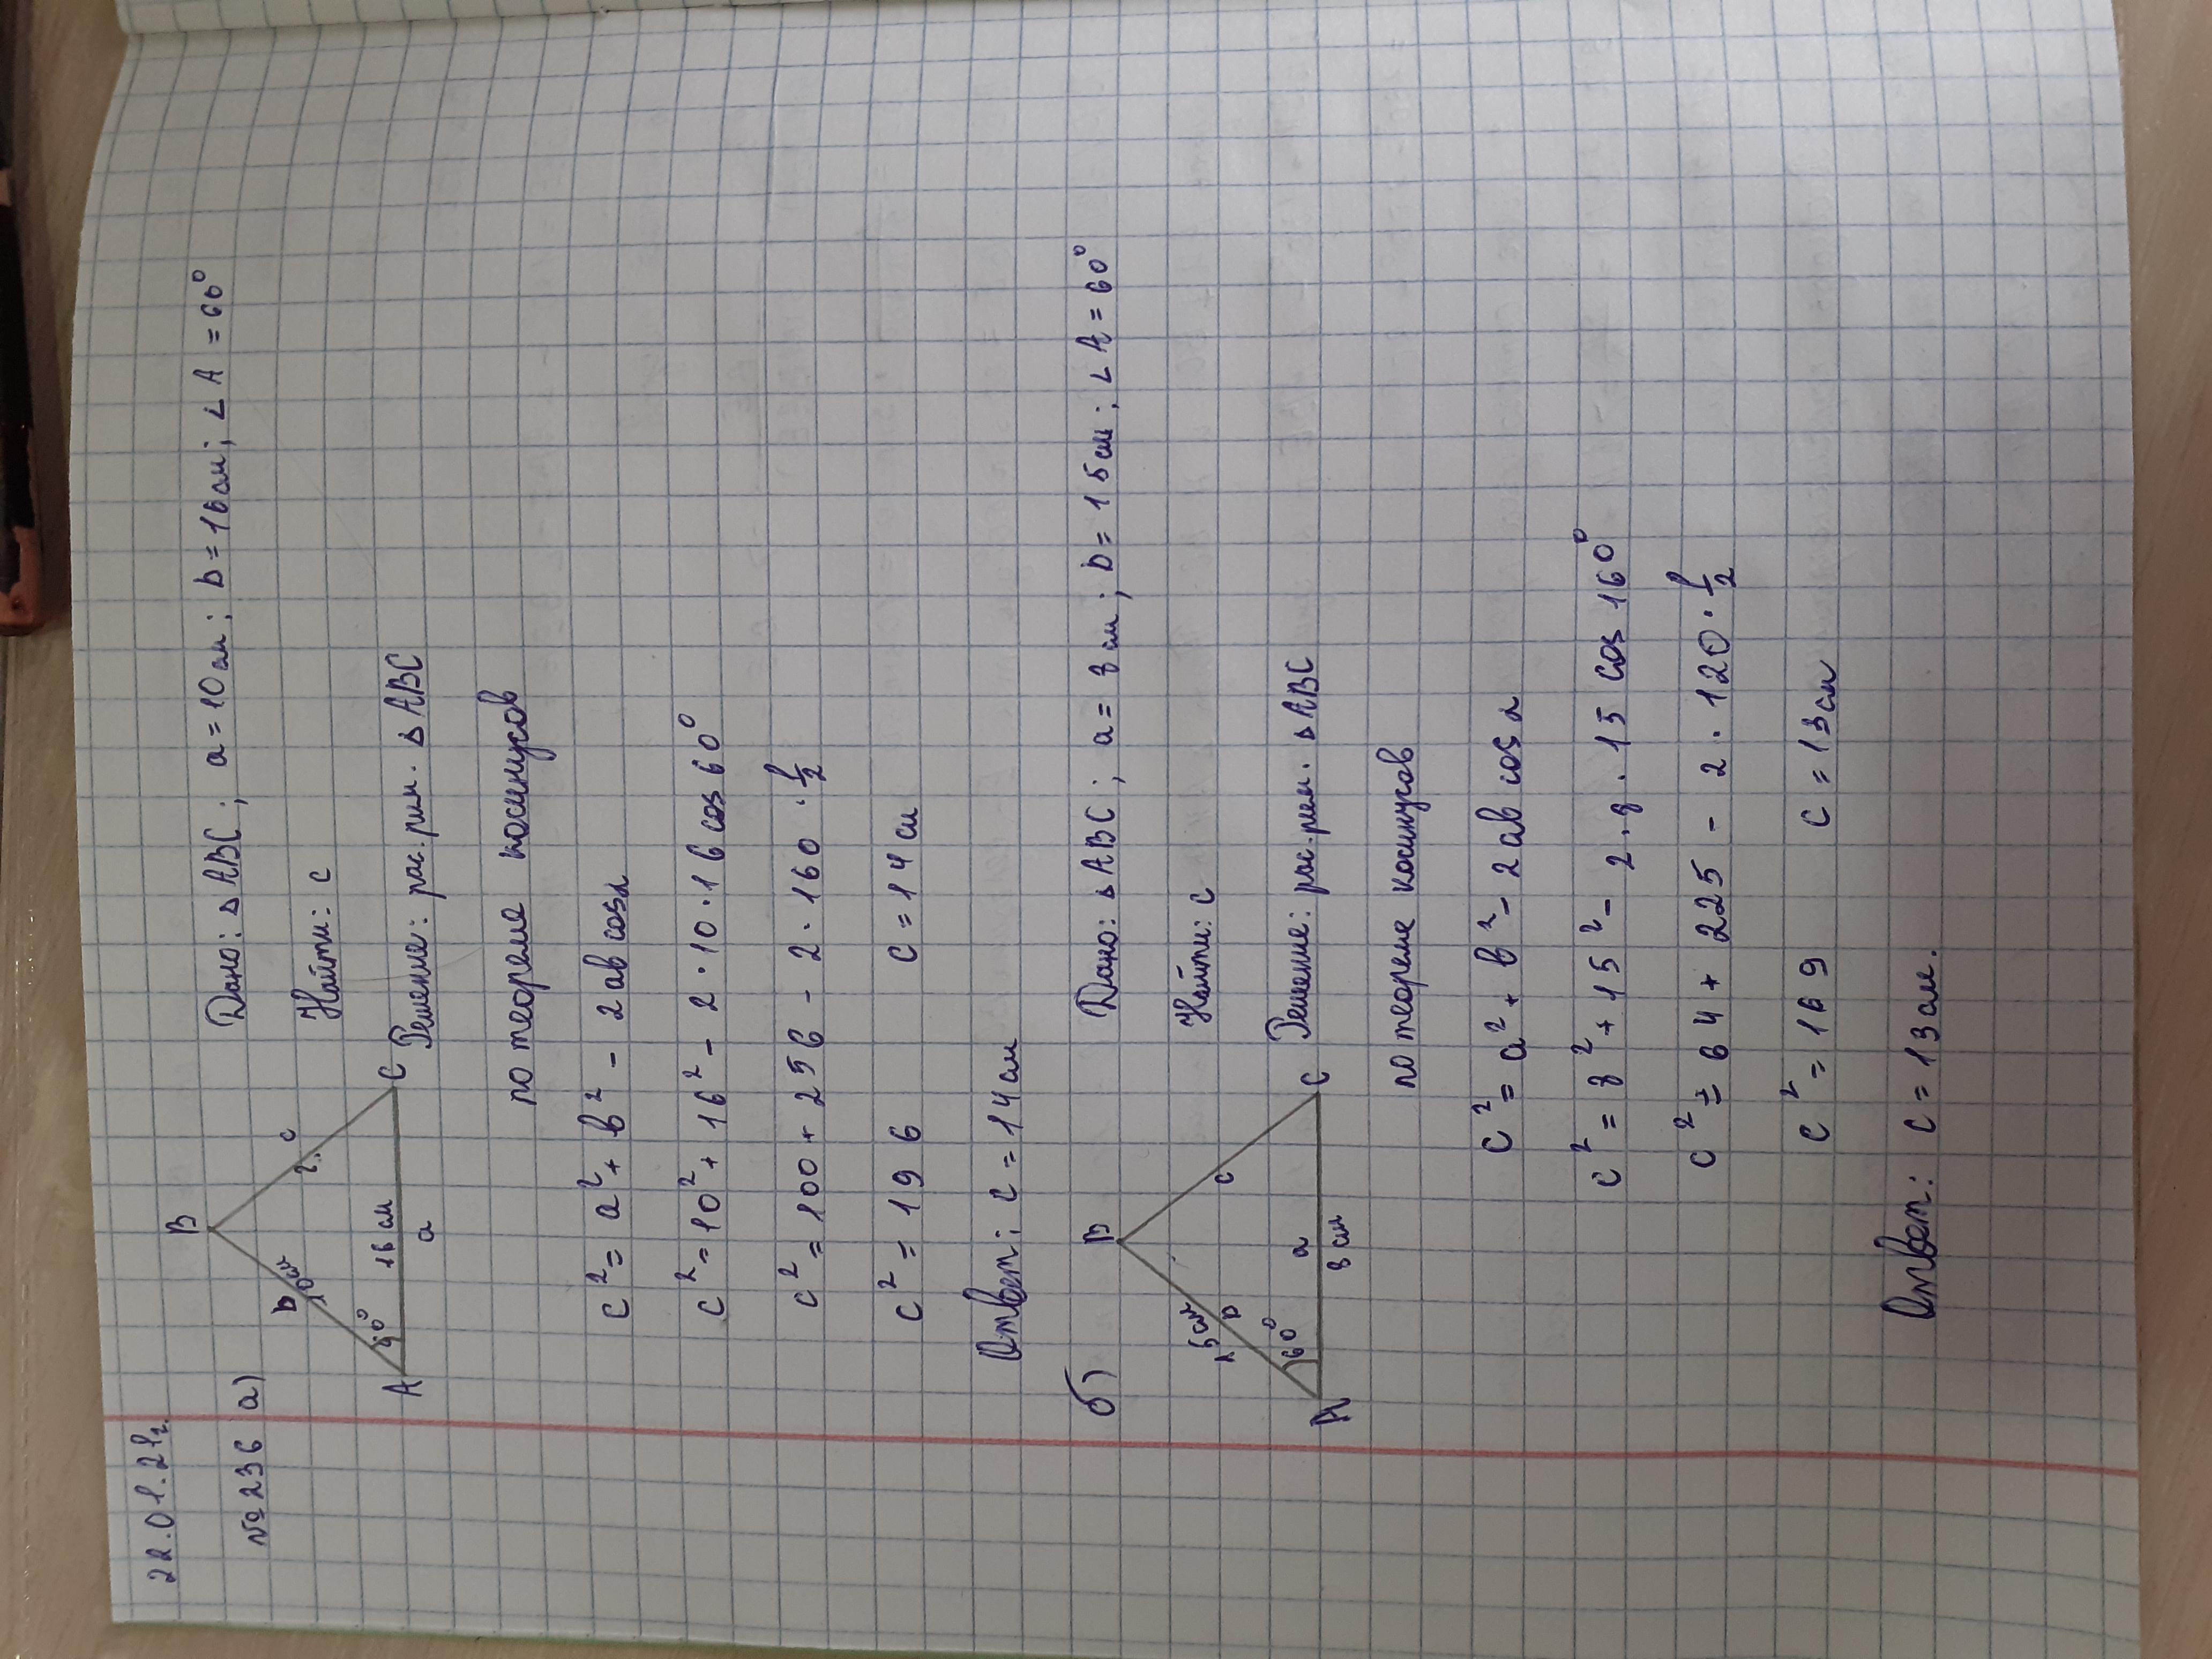 22.01.21г.
№236 а)
B
b 10см
?. c
60°
16 см
A
a
C
Дано: ▵ABC; a=10см; b=16см; ∠A=60°
Найти: c
Решение: рас.рим. ▵ABC
по теореме косинусов
c²=a²+b²-2ab cosα
c²=10²+16²-2·10·16cos60°
c²=100+256-2·160·1/2
c²=196 c=14см
Ответ: c=14см
б)
B
15см
b
c
60°
a
A
8см
C
Дано: ▵ABC; a=8см; b=15см; ∠A=60°
Найти: c
Решение: рас.рем. ▵ABC
по теореме косинусов
c²=a²+b²-2ab cosα
c²=8²+15²-2·8·15cos160°
c²=64+225-2·120·1/2
c²=169 c=13см
Ответ: c=13см.